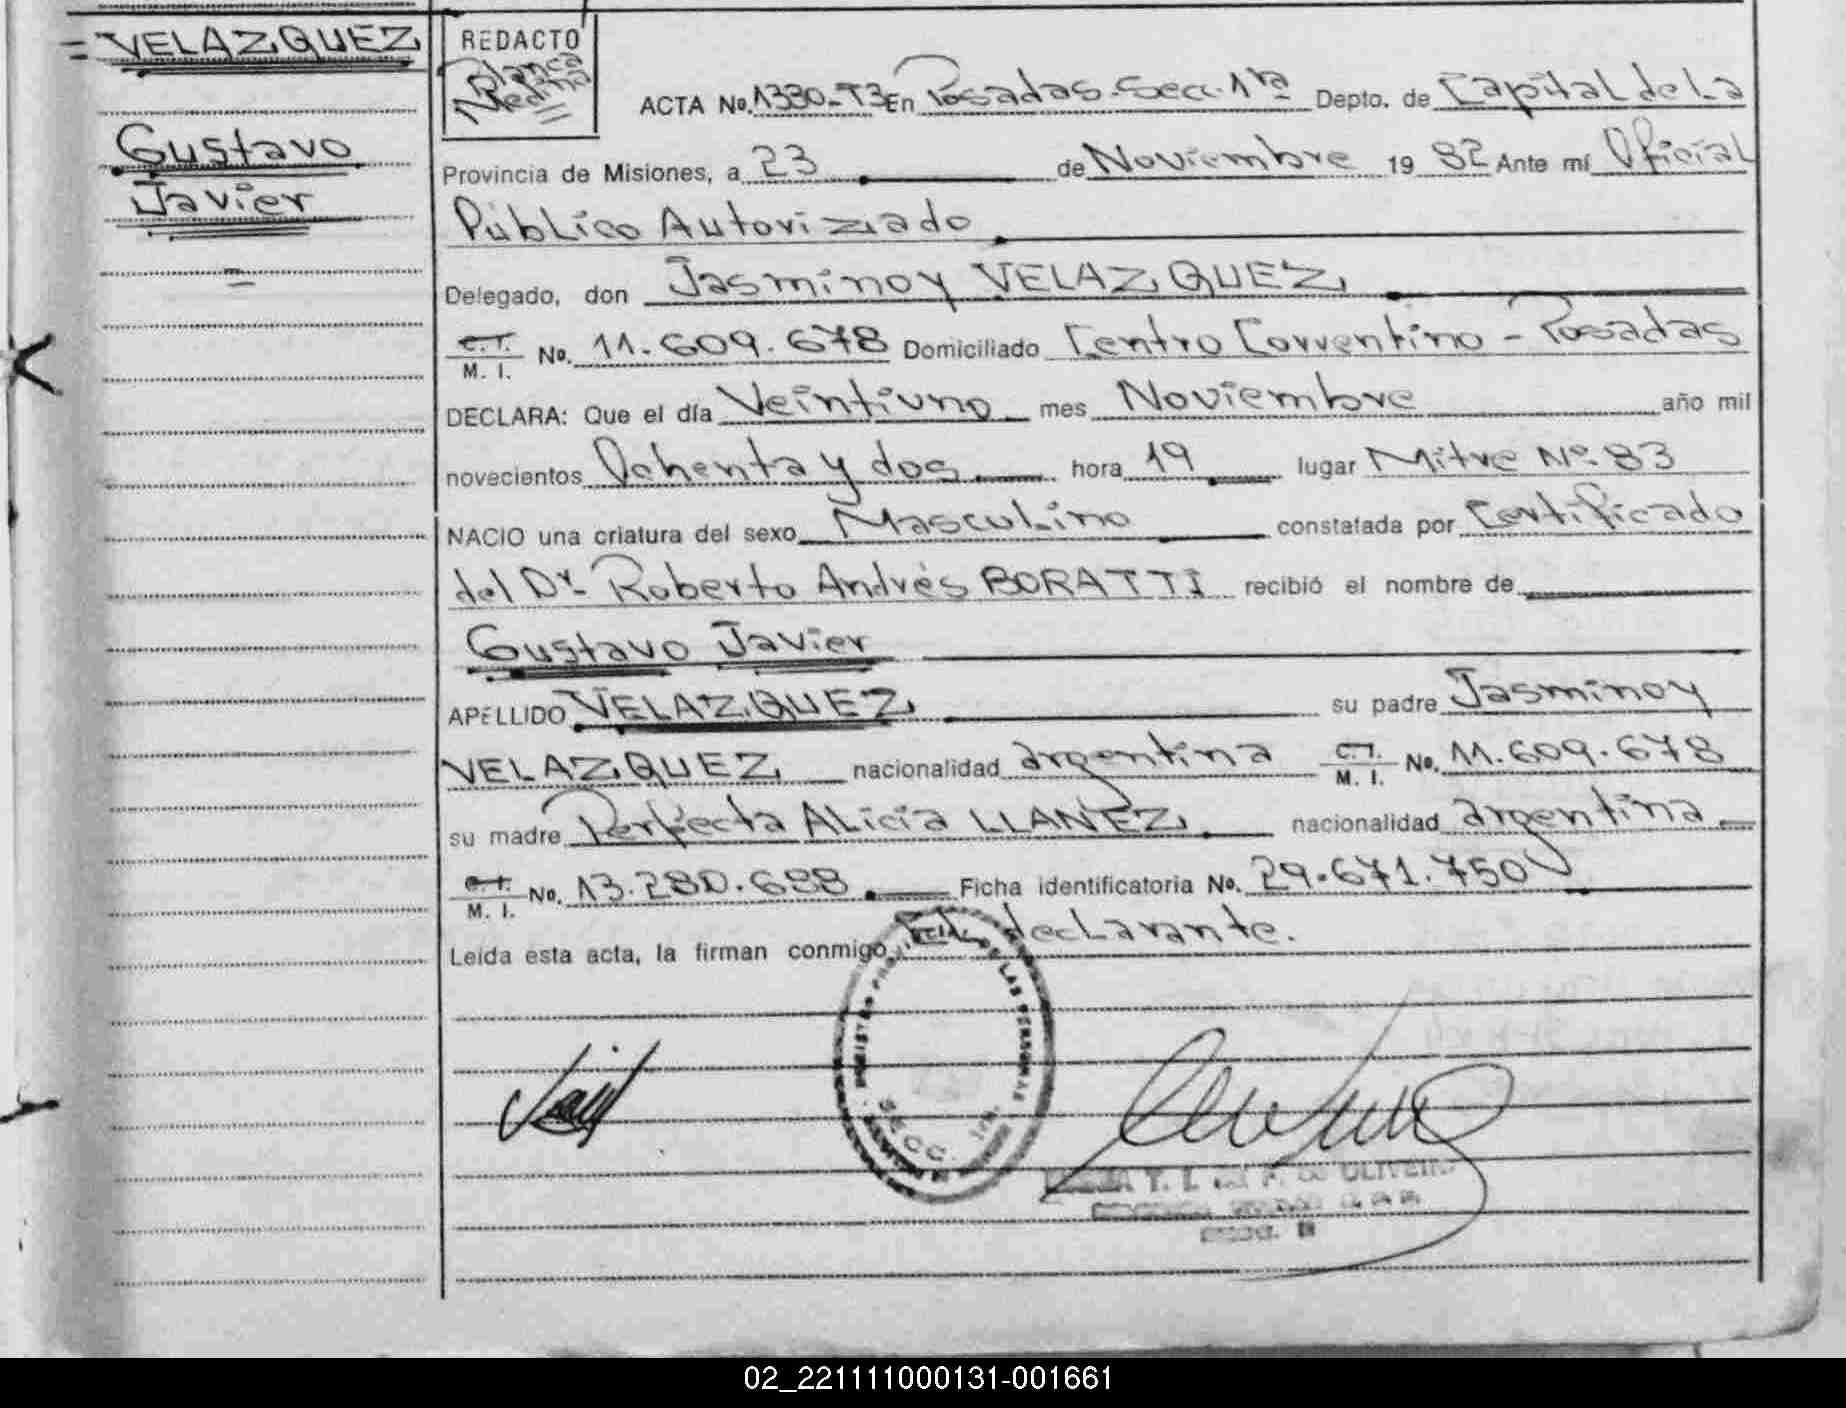 VELAZQUEZ
Gustavo
Javier
REDACTO
Blanca
Medina
ACTA No. 1330-T3 En Posadas-Secc. 1ra Depto. de Capital de La
Provincia de Misiones, a 23 de Noviembre 19 82 Ante mí Oficial
Público Autorizado
Delegado, don Jasminoy VELAZQUEZ
C.I. M. I. No. 11.609.678 Domiciliado Centro Correntino - Posadas
DECLARA: Que el día Veintiuno mes Noviembre año mil
novecientos Ochenta y dos hora 19 lugar Mitre Nº 83
NACIO una criatura del sexo Masculino constatada por Certificado
del Dr. Roberto Andrés BORATTI recibió el nombre de
Gustavo Javier
APELLIDO VELAZQUEZ su padre Jasminoy
VELAZQUEZ nacionalidad argentina C.I. M. I. No. 11.609.678
su madre Perfecta ALicia LLANEZ nacionalidad argentina
C.I. M. I. No. 13.280.688 Ficha identificatoria No. 29.671.750
Leída esta acta, la firman conmigo, El declarante.
DE LAS PERSONAS
SECC. 1ra.
02_221111000131-001661